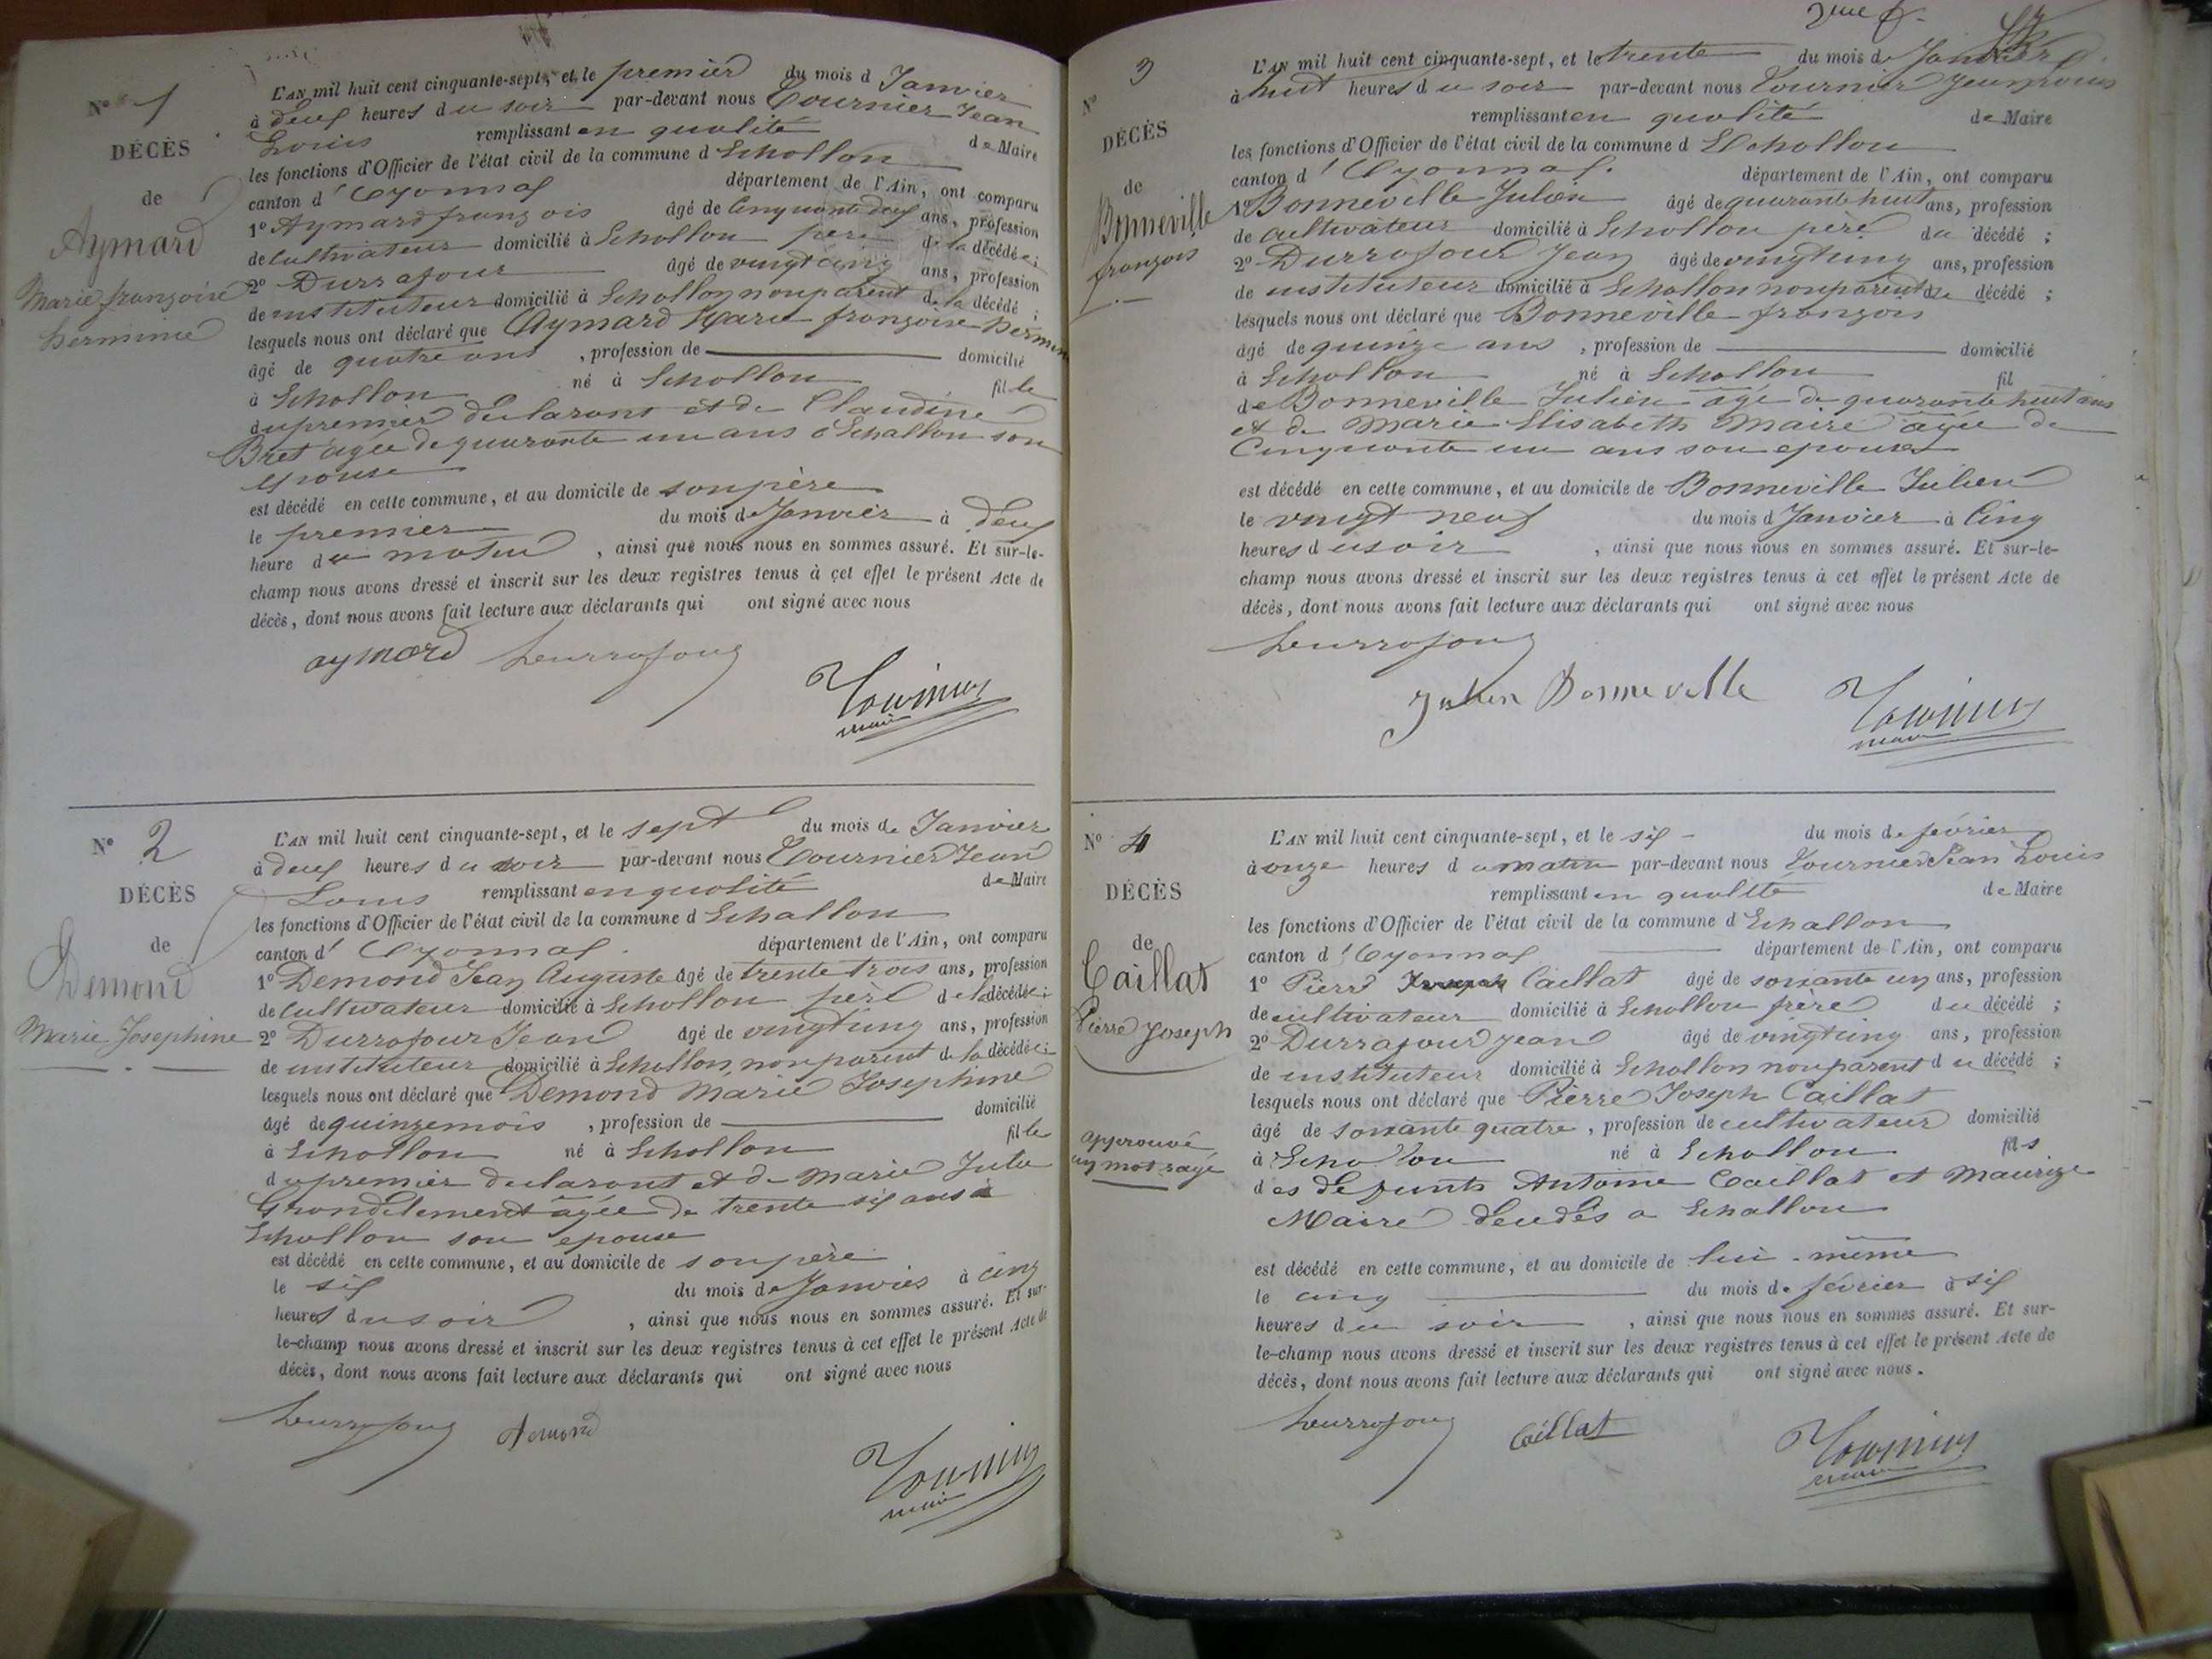 Nº 1
DÉCÈS
de
Aymard
Marie françoise
herminie
L'AN mil huit cent cinquante-sept, et le premier du mois d Janvier
à deux heures du soir par-devant nous Tournier Jean
Louis remplissant en qualité de Maire
les fonctions d'Officier de l'état civil de la commune d Echallon
canton d' Oyonnax département de l'Ain, ont comparu
1º Aymard françois âgé de Cinquante deux ans, profession
de cultivateur domicilié à Echallon père de la décédée ;
2º Durrafour âgé de vingt cinq ans, profession
de instituteur domicilié à Echallon non parent de la décédé ;
lesquels nous ont déclaré que Aymard Marie françoise hermin
âgé de quatre ans , profession de domicilié
à Echallon né à Echallon fille
du premier déclarant et de Claudine
Bret agée de quarante un ans à Echallon son
épouse
est décédé en cette commune, et au domicile de son père
le premier du mois de Janvier à deux
heure du matin , ainsi que nous nous en sommes assuré. Et sur-le-
champ nous avons dressé et inscrit sur les deux registres tenus à cet effet le présent Acte de
décès, dont nous avons fait lecture aux déclarants qui ont signé avec nous
aymard Durrafour
Tournier
maire
Nº 2
DÉCÈS
de
Demond
Marie Josephine
L'AN mil huit cent cinquante-sept, et le sept du mois de Janvier
à deux heures du soir par-devant nous Tournier Jean
Louis remplissant en qualité de Maire
les fonctions d'Officier de l'état civil de la commune d Echallon
canton d' Oyonnax département de l'Ain, ont comparu
1º Demond Jean Auguste âgé de trente trois ans, profession
de cultivateur domicilié à Echallon père de la décédée ;
2º Durrafour Jean âgé de vingt cinq ans, profession
de instituteur domicilié à Echallon, non parent de la décédée ;
lesquels nous ont déclaré que Demond Marie Josephine
âgé de quinze mois , profession de domicilié
à Echallon né à Echallon fille
du premier declarant et de Marie Julie
Grandclement agée de trente six ans à
Echallon son epouse
est décédé en cette commune, et au domicile de son père
le six du mois de Janvier à cinq
heures du soir , ainsi que nous nous en sommes assuré. Et sur-
le-champ nous avons dressé et inscrit sur les deux registres tenus à cet effet le présent Acte de
décès, dont nous avons fait lecture aux déclarants qui ont signé avec nous
Durrafour Demond
Tournier
maire
Nº 3
DÉCÈS
de
Bonneville
françois
L'AN mil huit cent cinquante-sept, et le trente du mois de Janvier
à huit heures du soir par-devant nous Tournier Jean Louis
remplissant en qualité de Maire
les fonctions d'Officier de l'état civil de la commune d Echallon
canton d' Oyonnax. département de l'Ain, ont comparu
1º Bonneville Julien âgé de quarante huit ans, profession
de cultivateur domicilié à Echallon père du décédé ;
2º Durrafour Jean âgé de vingt cinq ans, profession
de instituteur domicilié à Echallon non parent du décédé ;
lesquels nous ont déclaré que Bonneville françois
âgé de quinze ans , profession de domicilié
à Echallon né à Echallon fil
de Bonneville Julien agé de quarante huit ans
et de Marie Elisabeth Maire agée de
Cinquante un ans son epouse
est décédé en cette commune, et au domicile de Bonneville Julien
le vingt neuf du mois d Janvier à Cinq
heures du soir , ainsi que nous nous en sommes assuré. Et sur-le-
champ nous avons dressé et inscrit sur les deux registres tenus à cet effet le présent Acte de
décès, dont nous avons fait lecture aux déclarants qui ont signé avec nous
Durrafour
Julien Bonneville Tournier
maire
Nº 4
DÉCÈS
de
Caillat
Pierre Joseph
approuvé
un mot rayé
L'AN mil huit cent cinquante-sept, et le six du mois de février
à onze heures du matin par-devant nous Tournier Jean Louis
remplissant en qualité de Maire
les fonctions d'Officier de l'état civil de la commune d Echallon
canton d' Oyonnax département de l'Ain, ont comparu
1º Pierre Joseph Caillat âgé de soixante un ans, profession
de cultivateur domicilié à Echallon frère du décédé ;
2º Durrafour Jean âgé de vingt cinq ans, profession
de instituteur domicilié à Echallon non parent du décédé ;
lesquels nous ont déclaré que Pierre Joseph Caillat
âgé de soixante quatre , profession de cultivateur domicilié
à Echallon né à Echallon fils
des defunts Antoine Caillat et Maurize
Maire décédés a Echallon
est décédé en cette commune, et au domicile de lui-même
le cinq du mois de février à six
heures du soir , ainsi que nous nous en sommes assuré. Et sur-
le-champ nous avons dressé et inscrit sur les deux registres tenus à cet effet le présent Acte de
décès, dont nous avons fait lecture aux déclarants qui ont signé avec nous.
Durrafour Caillat Tournier
maire